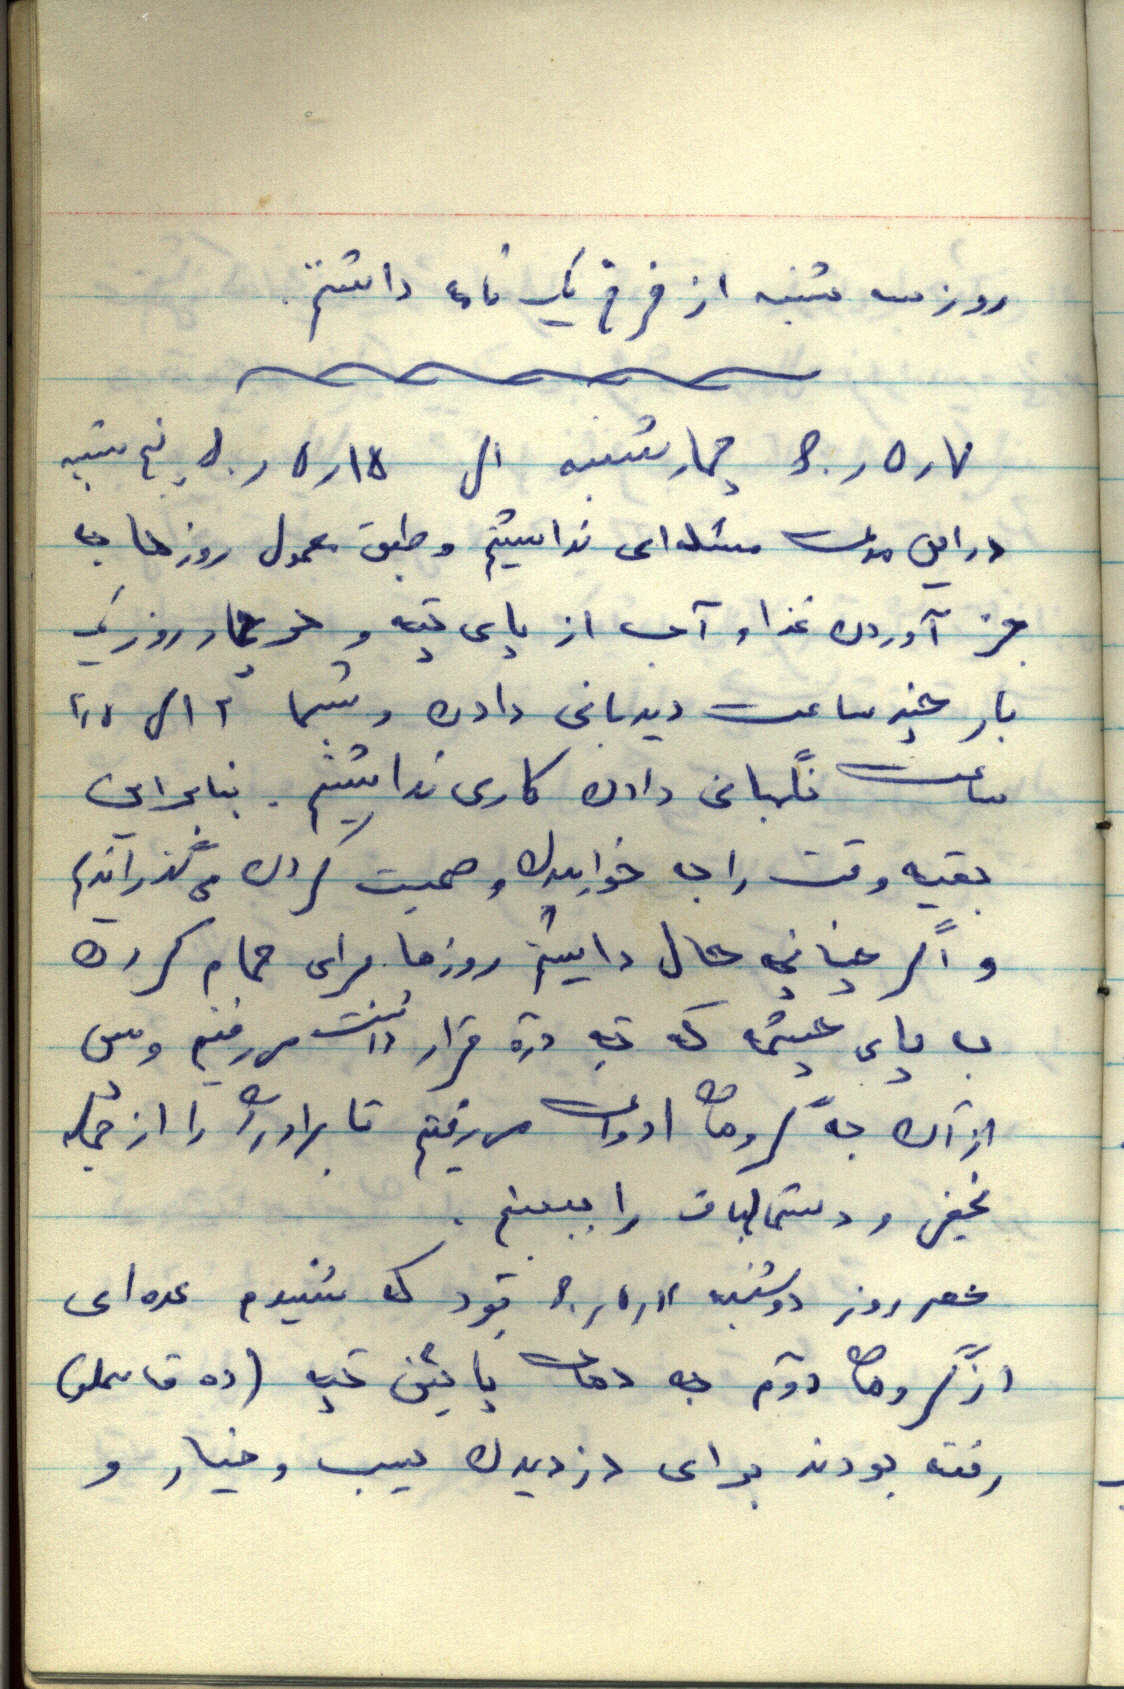 روز سه شنبه از فرخ یک نامه داشتم.
چهارشنبه الی پنج شنبه
در این مدت مسئله‌ای نداشتیم و طبق معمول روزها به
جز آوردن غذا و آب از پای تپه و هر چهار روز یک
بار چند ساعت دیدبانی دادن و شبها ۲ الی ۲٫۵
ساعت نگهبانی دادن کاری نداشتیم. بنابراین
بقیه وقت را به خوابیدن و صحبت کردن می گذراندیم
و اگر چنانچه حال داشتیم روزها برای حمام کردن
به پای چشمه که ته دره قرار داشت می رفتیم و پس
از آن به گروهان ادوات می رفتم تا برادران را از جمله
نجفی و دستمالباف را ببینم.
عصر روز دوشنبه بود که شنیدم عده‌ای
از گروهان دوم به دهات پائین تپه (ده قاسملو)
رفته بودند برای دزدیدن سیب و خیار و